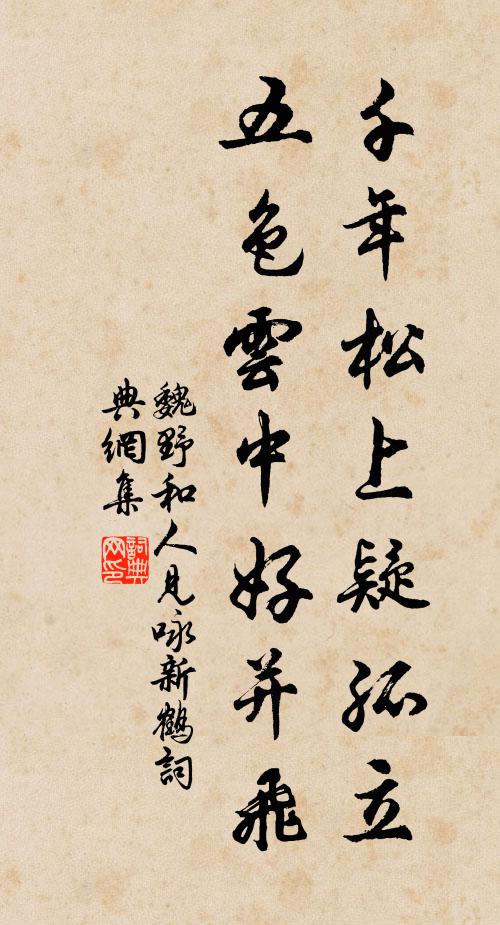 千年松上疑孤立
五色雲中好并飛
魏野和人見咏新鶴詞
典網集
詞典網印